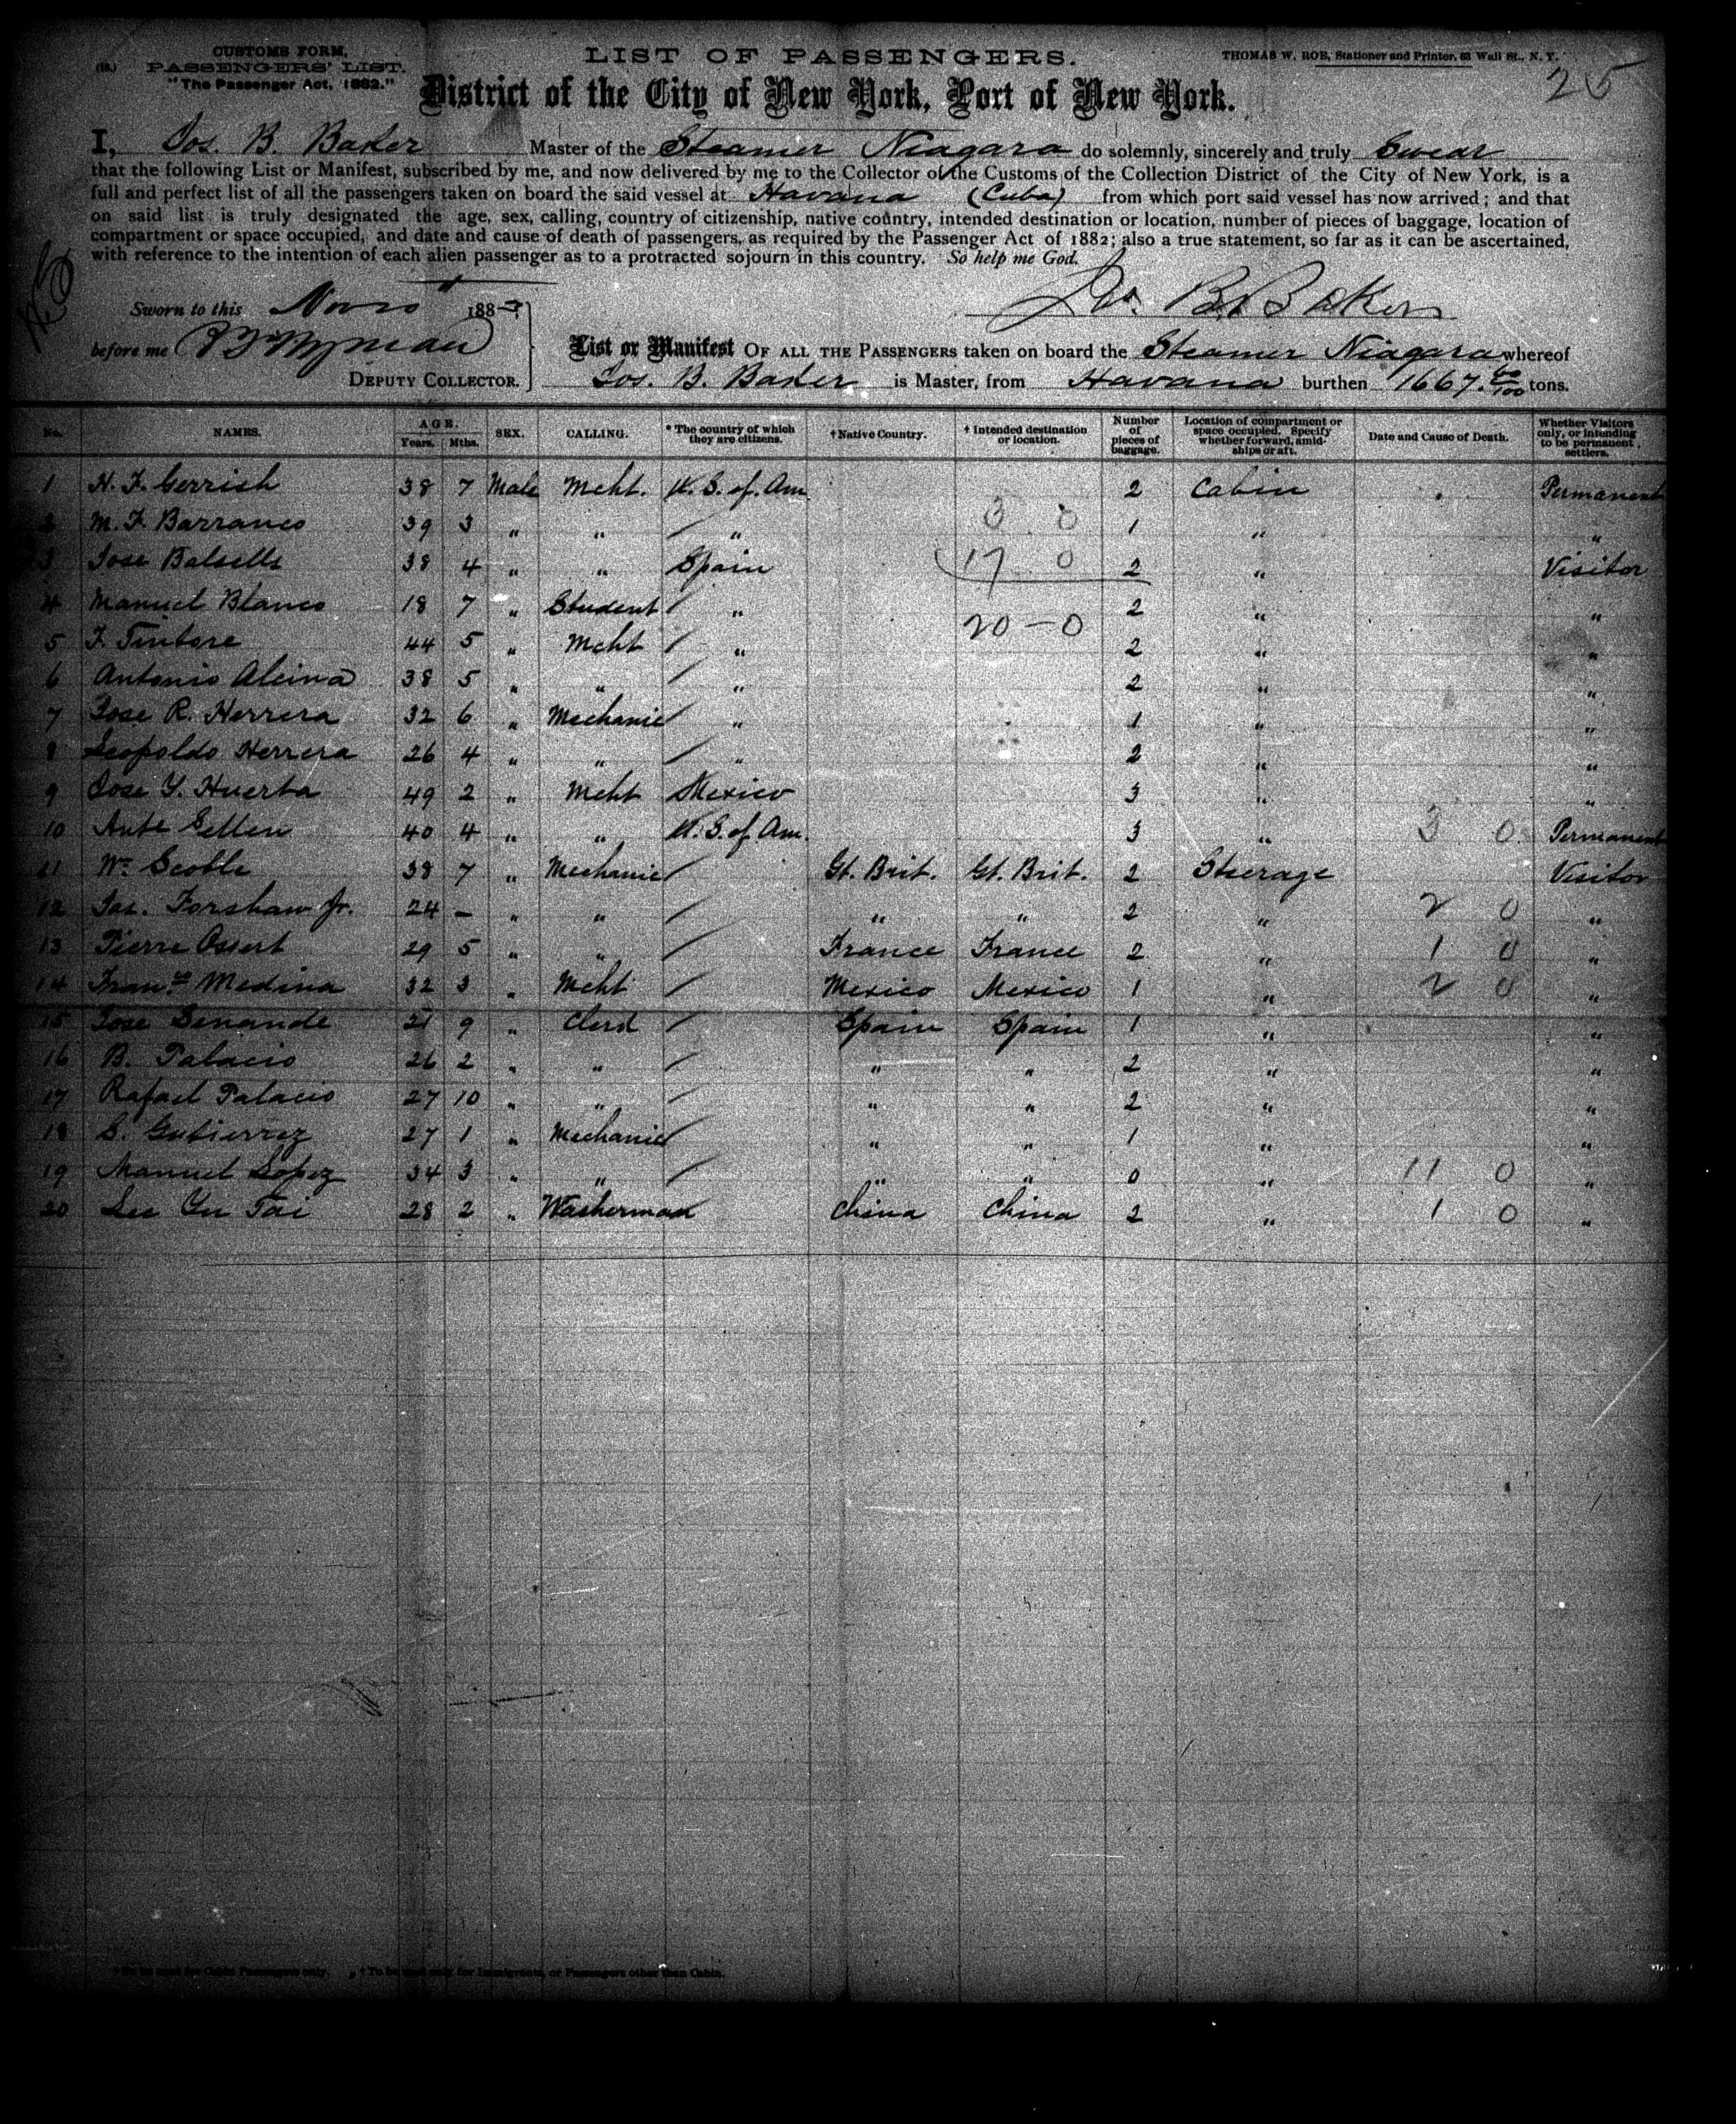 CUSTOMS FORM,
PASSENGERS' LIST.
"The Passenger Act, 1882."
LIST OF PASSENGERS.
THOMAS W. ROE, Stationer and Printer, 63 Wall St., N. Y.
25
District of the City of New York, Port of New York.
I, Jos. B. Baker Master of the Steamer Niagara do solemnly, sincerely and truly Swear
that the following List or Manifest, subscribed by me, and now delivered by me to the Collector of the Customs of the Collection District of the City of New York, is a
full and perfect list of all the passengers taken on board the said vessel at Havana (Cuba) from which port said vessel has now arrived; and that
on said list is truly designated the age, sex, calling, country of citizenship, native country, intended destination or location, number of pieces of baggage, location of
compartment or space occupied, and date and cause of death of passengers, as required by the Passenger Act of 1882; also a true statement, so far as it can be ascertained,
with reference to the intention of each alien passenger as to a protracted sojourn in this country. So help me God.
Jos. B. Baker
Sworn to this Nov 188
before me
DEPUTY COLLECTOR.
List or Manifest OF ALL THE PASSENGERS taken on board the Steamer Niagara whereof
Jos. B. Baker is Master, from Havana burthen 1667. 60/100 tons.
No. NAMES. AGE. Years. Mths. SEX. CALLING. * The country of which they are citizens. † Native Country. † Intended destination or location. Number of pieces of baggage. Location of compartment or space occupied. Specify whether forward, amidships or aft. Date and Cause of Death. Whether Visitors only, or intending to be permanent settlers.
1 H. F. Gerrish 38 7 Male Mcht. U. S. of. Am. 2 Cabin Permanent
2 M. F. Barranco 39 3 " " " 3 0 1 " "
3 Jose Balsells 38 4 " " Spain 17 0 2 " Visitor
4 Manuel Blanco 18 7 " Student " 2 " "
20-0
5 F. Tintore 44 5 " Mcht " 2 " "
6 Antonio Alcina 38 5 " " " 2 " "
7 Jose R. Herrera 32 6 " Mechanic " 1 " "
8 Leopoldo Herrera 26 4 " " " 2 " "
9 Jose Y. Huerta 49 2 " Mcht Mexico 3 " "
10 Anto Gellen 40 4 " " U. S. of Am. 3 " 3 0 Permanent
11 Wm Scoble 38 7 " Mechanic Gt. Brit. Gt. Brit. 2 Steerage Visitor
12 Jas. Forshaw Jr. 24 - " " " " 2 " 2 0 "
13 Pierre Ossert 29 5 " " France France 2 " 1 0 "
14 Franco Medina 32 3 " Mcht Mexico Mexico 1 " 2 0 "
15 Jose Senande 21 9 " Clerk Spain Spain 1 " "
16 B. Palacio 26 2 " " " " 2 " "
17 Rafael Palacio 27 10 " " " " 2 " "
18 S. Gutierrez 27 1 " Mechanic " " 1 " "
19 Manuel Lopez 34 3 " " " " 0 " 11 0 "
20 Lee Yu Tai 28 2 " Washerman China China 2 " 1 0 "
* To be used for Cabin Passengers only. † To be used only for Immigrants, or Passengers other than Cabin.